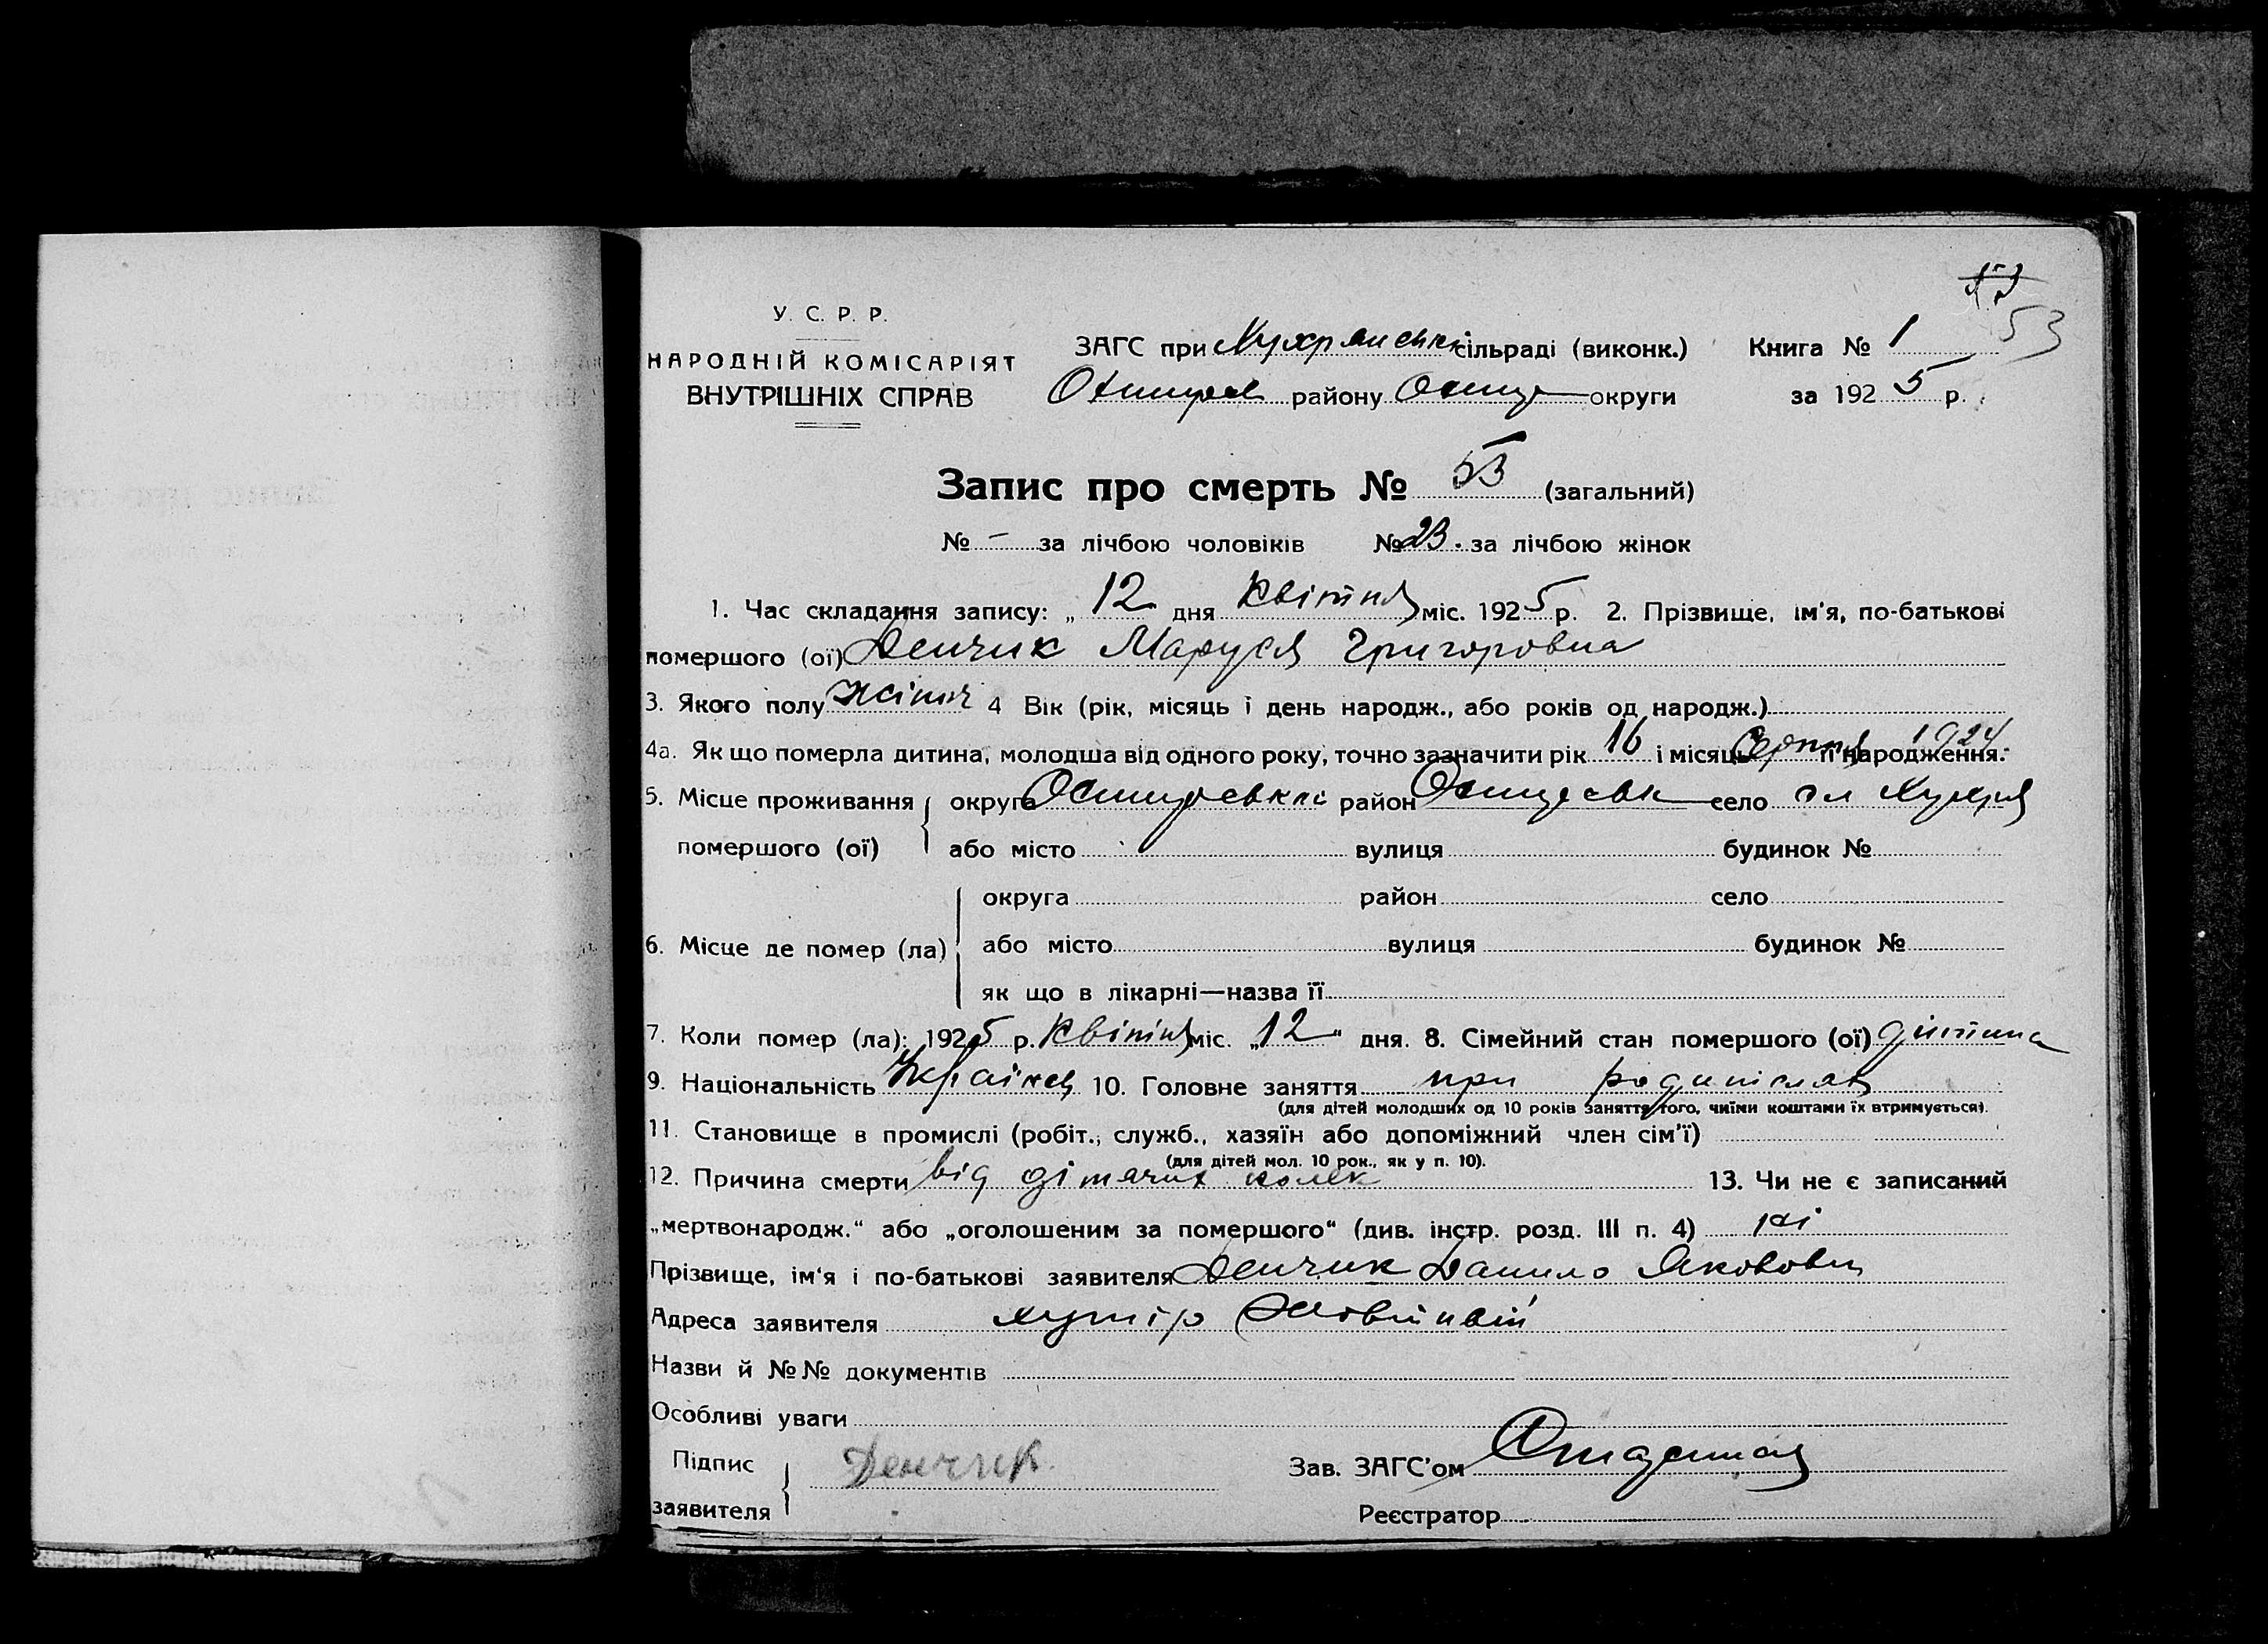 53
У. С. Р. Р.
НАРОДНІЙ КОМІСАРІЯТ
ВНУТРІШНІХ СПРАВ
ЗАГС при сільраді (виконк.) Книга № 1
району округи за 1925 р.
Запис про смерть № 53 (загальний)
№ – за лічбою чоловіків № 23. за лічбою жінок
1. Час складання запису: „ 12 дня Квітня міс. 1925 р. 2. Прізвище, ім'я, по-батькові
помершого (ої) Денчик Маруся Григоровна
3. Якого полу жіноч 4 Вік (рік, місяць і день народж., або років од народж.)
4а. Як що померла дитина, молодша від одного року, точно зазначити рік 16 і місяць Серпня 1924 її народження.
5. Місце проживання округа район село
помершого (ої) або місто вулиця будинок №
округа район село
6. Місце де помер (ла) або місто вулиця будинок №
як що в лікарні—назва її
7. Коли помер (ла): 1925 р. Квітня міс. „12" дня. 8. Сімейний стан помершого (ої) дитина
9. Національність Українец 10. Головне заняття при
(для дітей молодших од 10 років заняття того, чиїми коштами їх втримується).
11. Становище в промислі (робіт., служб., хазяїн або допоміжний член сім'ї)
(для дітей мол. 10 рок., як у п. 10).
12. Причина смерти від дітячих колек 13. Чи не є записаний
„мертвонародж.“ або „оголошеним за помершого“ (див. інстр. розд. III п. 4) ні
Прізвище, ім'я і по-батькові заявителя Денчик Данило Якович
Адреса заявителя хутір
Назви й №№ документів
Особливі уваги
Підпис Денчик Зав. ЗАГС'ом
заявителя Реєстратор